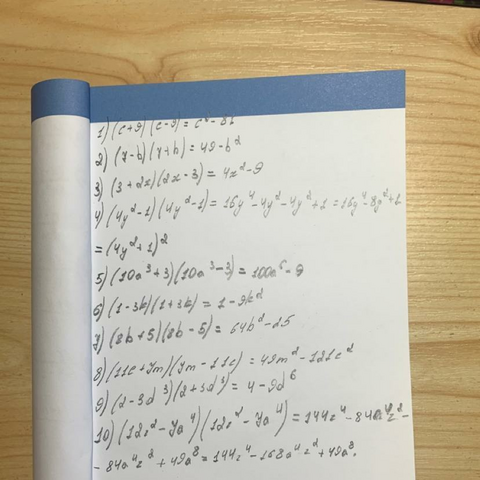 1) (c+9)(c-9)= c²-81
2) (7-b)(7+b)=49-b²
3) (3+2x)(2x-3)= 4x²-9
4) (4y²-1)(4y²-1)=16y⁴-4y²-4y²+1=16y⁴-8y²+1
=(4y²+1)²
5) (10a³+3)(10a³-3)=100a⁶-9
6) (1-3k)(1+3k)=1-9k²
7) (8b+5)(8b-5)=64b²-25
8) (11c+7m)(7m-11c)=49m²-121c²
9) (2-3d³)(2+3d³)=4-9d⁶
10) (12z²-7a⁴)(12z²-7a⁴)=144z⁴-84a⁴z²-
-84a⁴z²+49a⁸=144z⁴-168a⁴z²+49a⁸.